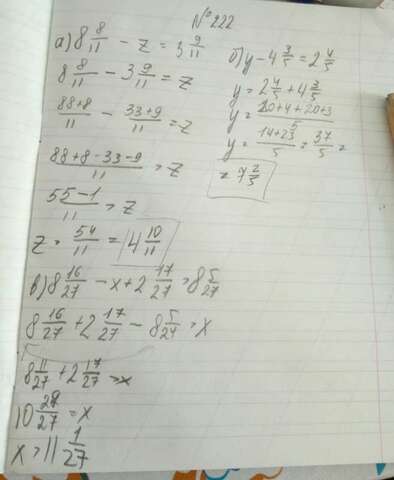 №222
а) 8 8/11 - z = 3 9/11
8 8/11 - 3 9/11 = z
88+8/11 - 33+9/11 = z
88+8-33-9/11 = z
55-1/11 = z
z = 54/11 = 4 10/11
б) y - 4 3/5 = 2 4/5
y = 2 4/5 + 4 3/5
y = 10+4+20+3/5
y = 14+23/5 = 37/5 =
= 7 2/5
в) 8 16/27 - x + 2 17/27 = 8 5/27
8 16/27 + 2 17/27 - 8 5/27 = x
8 11/27 + 2 17/27 = x
10 28/27 = x
x = 11 1/27